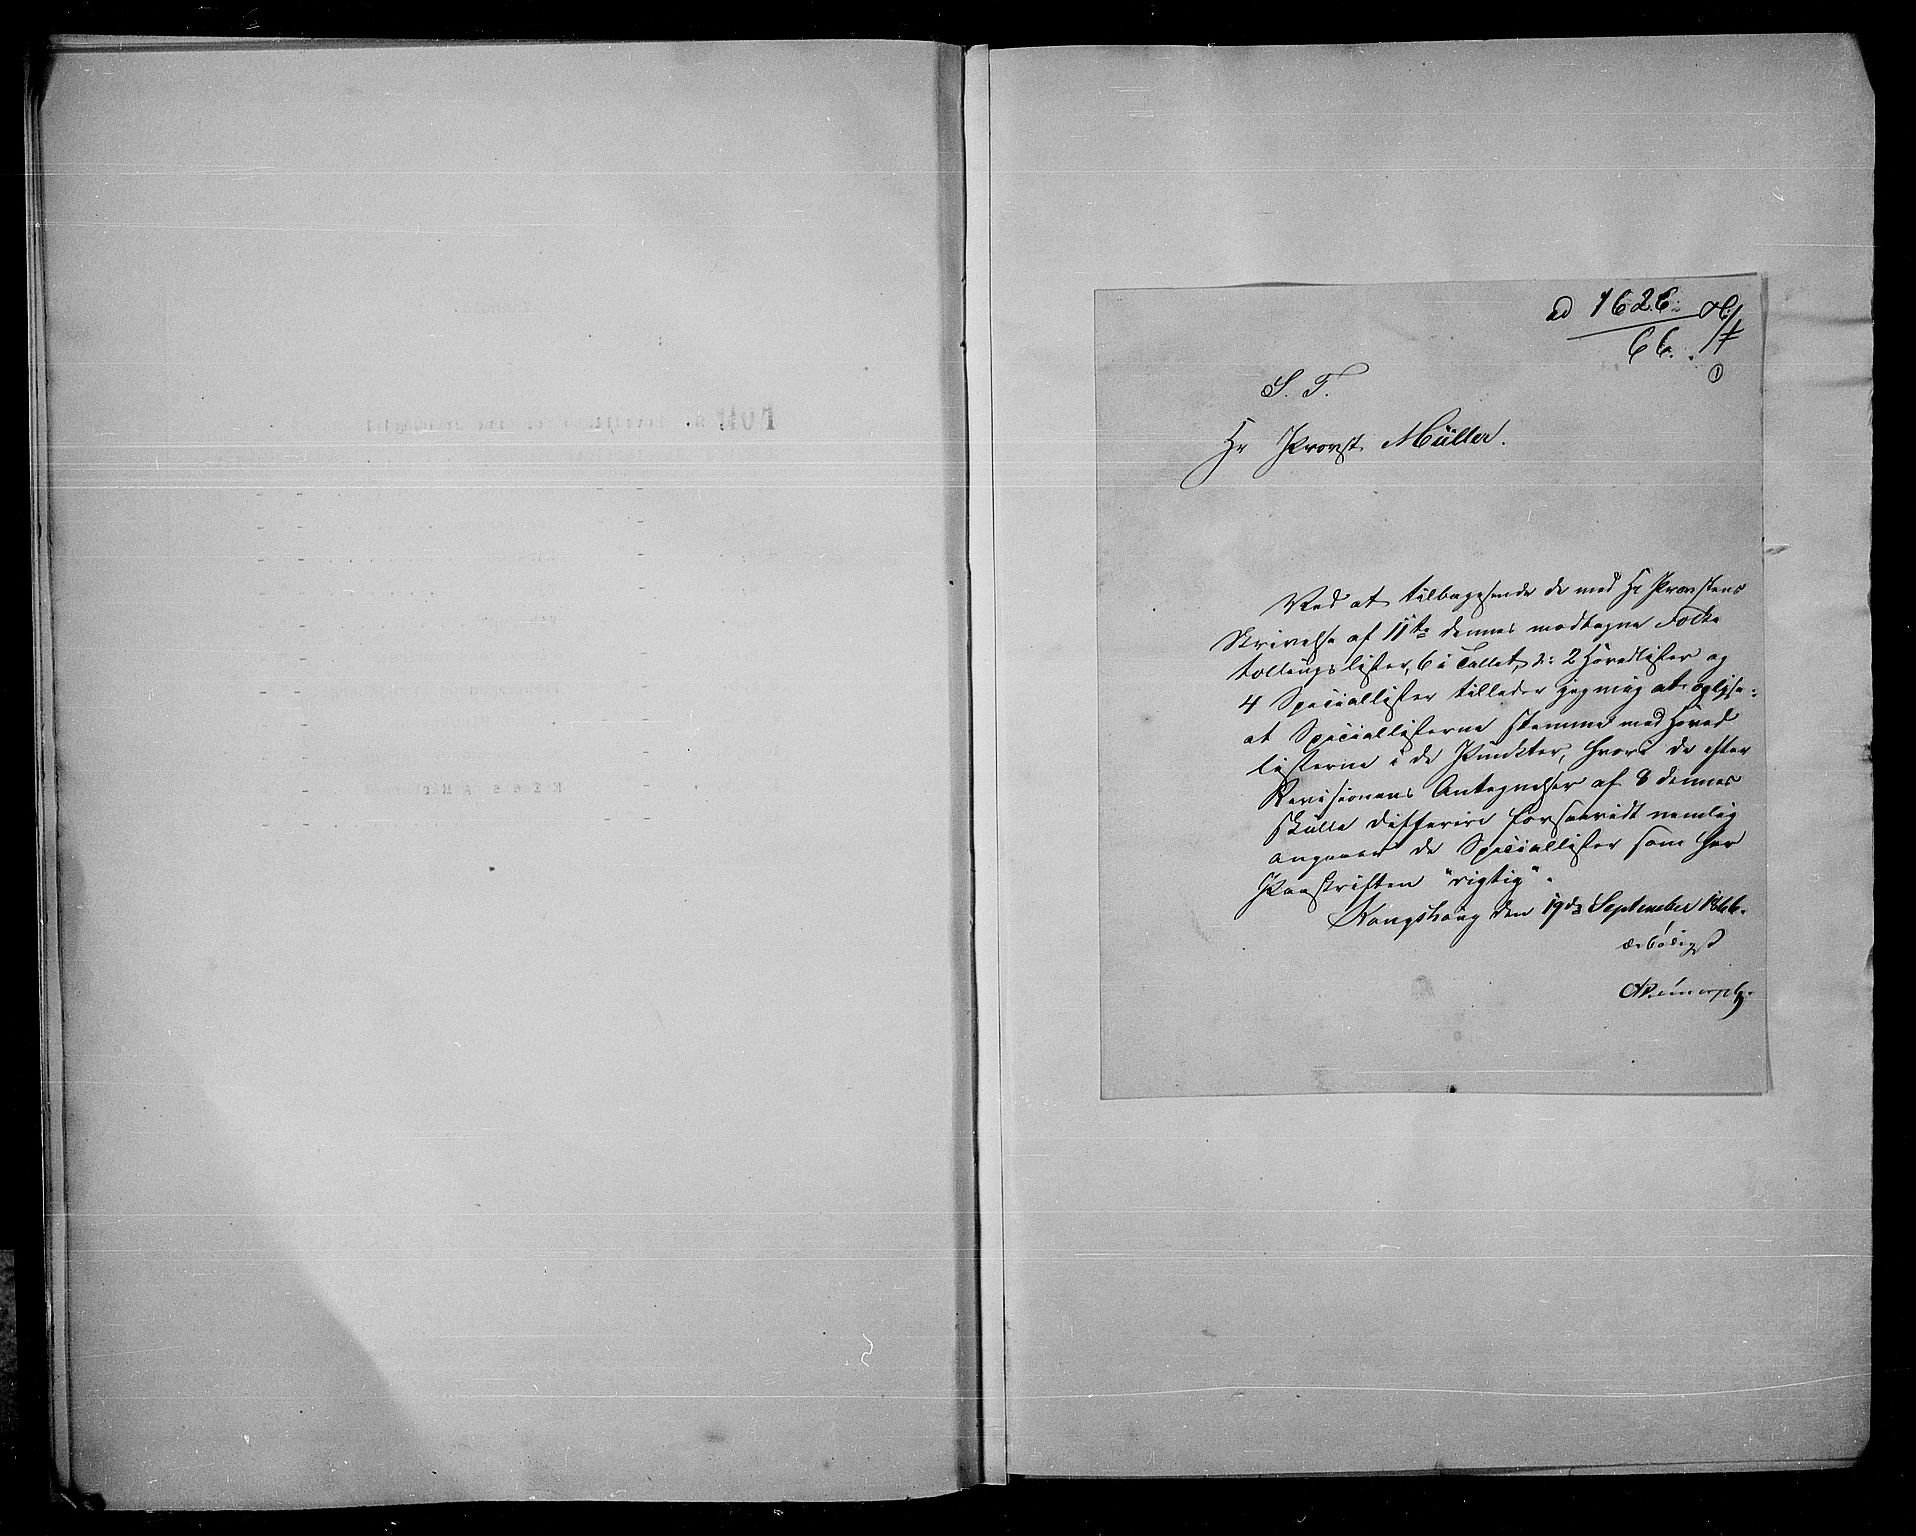 ad 1626.
66.
1
S. T.
Hr Provst Müller.
Ved at tilbagesende de med Hr Provstens
Skrivelse af 11te dennes modtagne Folke
tællingslister, 6 i Tallet, d: 2 Hovedlister og
4 Speciallister tillader jeg mig at oplyse:
at Speciallisterne stemme med Hoved
listerne i de Punkter, hvori de efter
Revisionens Antegnelser af 8 dennes
skulle differere forsaavidt nemlig
angaaer de Speciallister som har
Paaskriften "rigtig".
Kongsberg den 19de September 1866.
ærbødigst